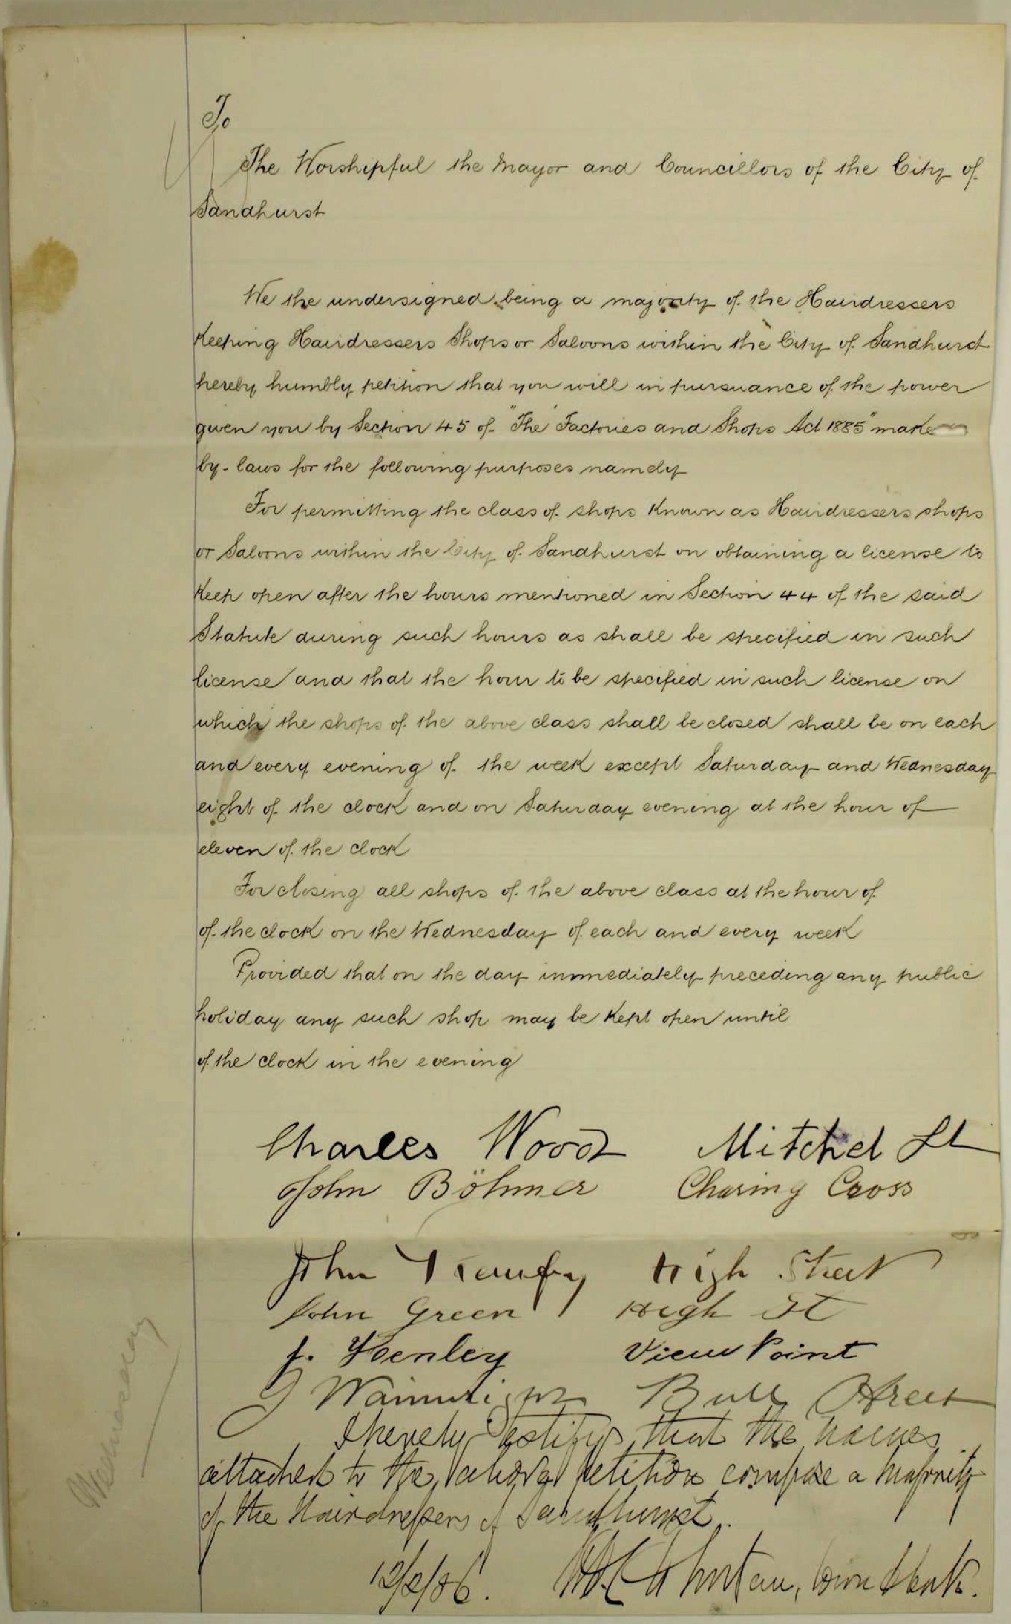 To
The Worshipful the Mayor and Councillors of the City of
Sandhurst
We the undersigned being a majority of the Hairdressers
Keeping Hairdressers Shops or Saloons within the City of Sandhurst
hereby humbly petition that you will in pursuance of the power
given you by Section 45 of "The Factories and Shops Act 1885" make
by-laws for the following purposes namely
For permitting the class of shops known as Hairdressers shops
or Saloons within the City of Sandhurst on obtaining a license to
Keep open after the hours mentioned in Section 44 of the said
Statute during such hours as shall be specified in such
license and that the hour to be specified in such license on
which the shops of the above class shall be closed shall be on each
and every evening of the week except Saturday and Wednesday
eight of the clock and on Saturday evening at the hour of
eleven of the clock
For closing all shops of the above class at the hour of
of the clock on the Wednesday of each and every week
Provided that on the day immediately preceding any public
holiday any such shop may be Kept open until
of the clock in the evening
Charles Wood Mitchel St
John Böhmer Charing Cross
John High Street
John Green High St
J. Henley View Point
J Wainwright Bull Street
I hereby testify that the names
attached to the above petition compose a majority
of the Hairdressers of Sandhurst.
12/2/86. Town Clerk.
Wednesday